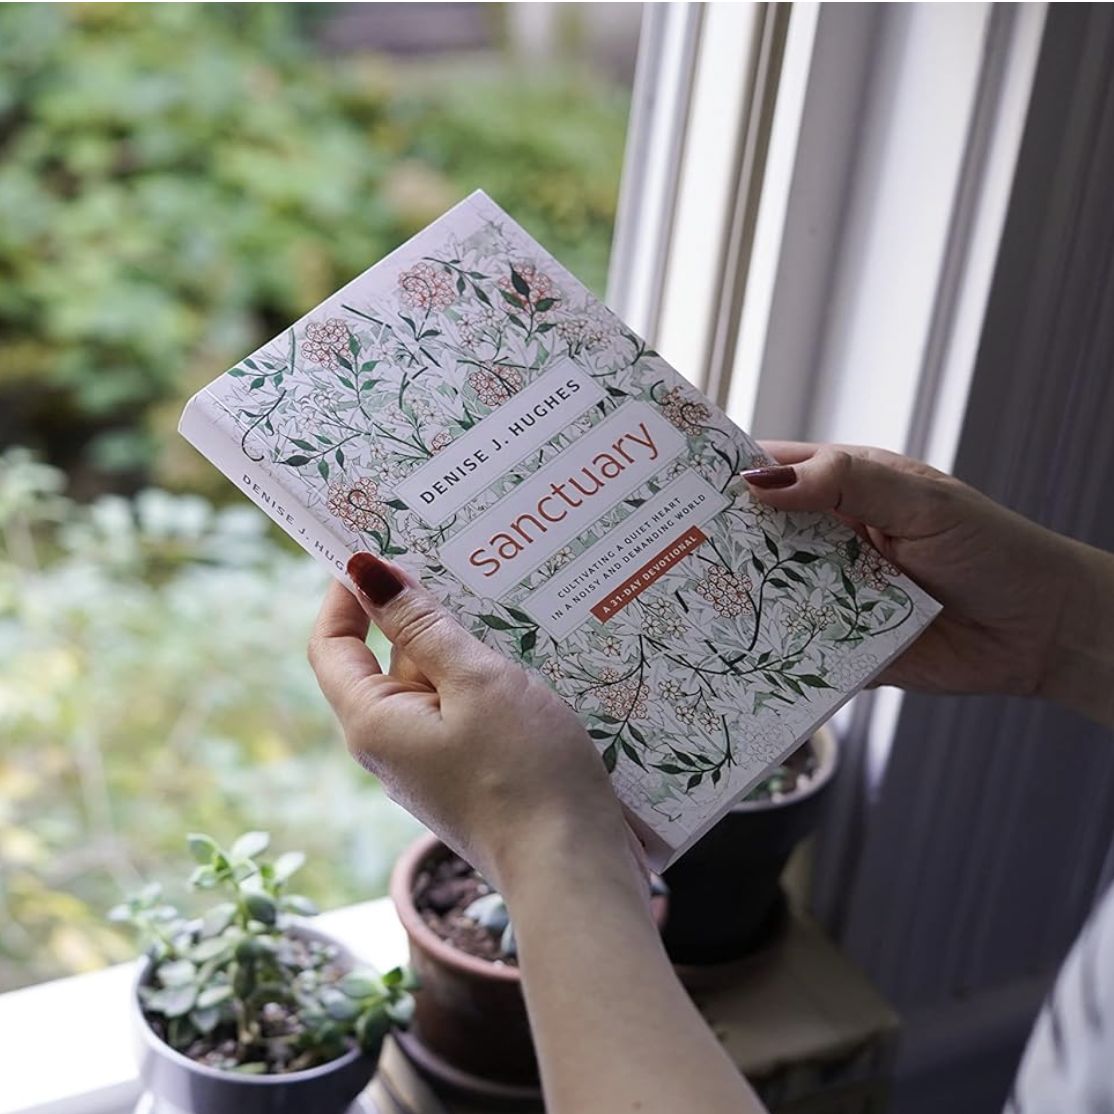 DENISE J. HUGHES
sanctuary
CULTIVATING A QUIET HEART
IN A NOISY AND DEMANDING WORLD
A 31-DAY DEVOTIONAL
DENISE J. HUG